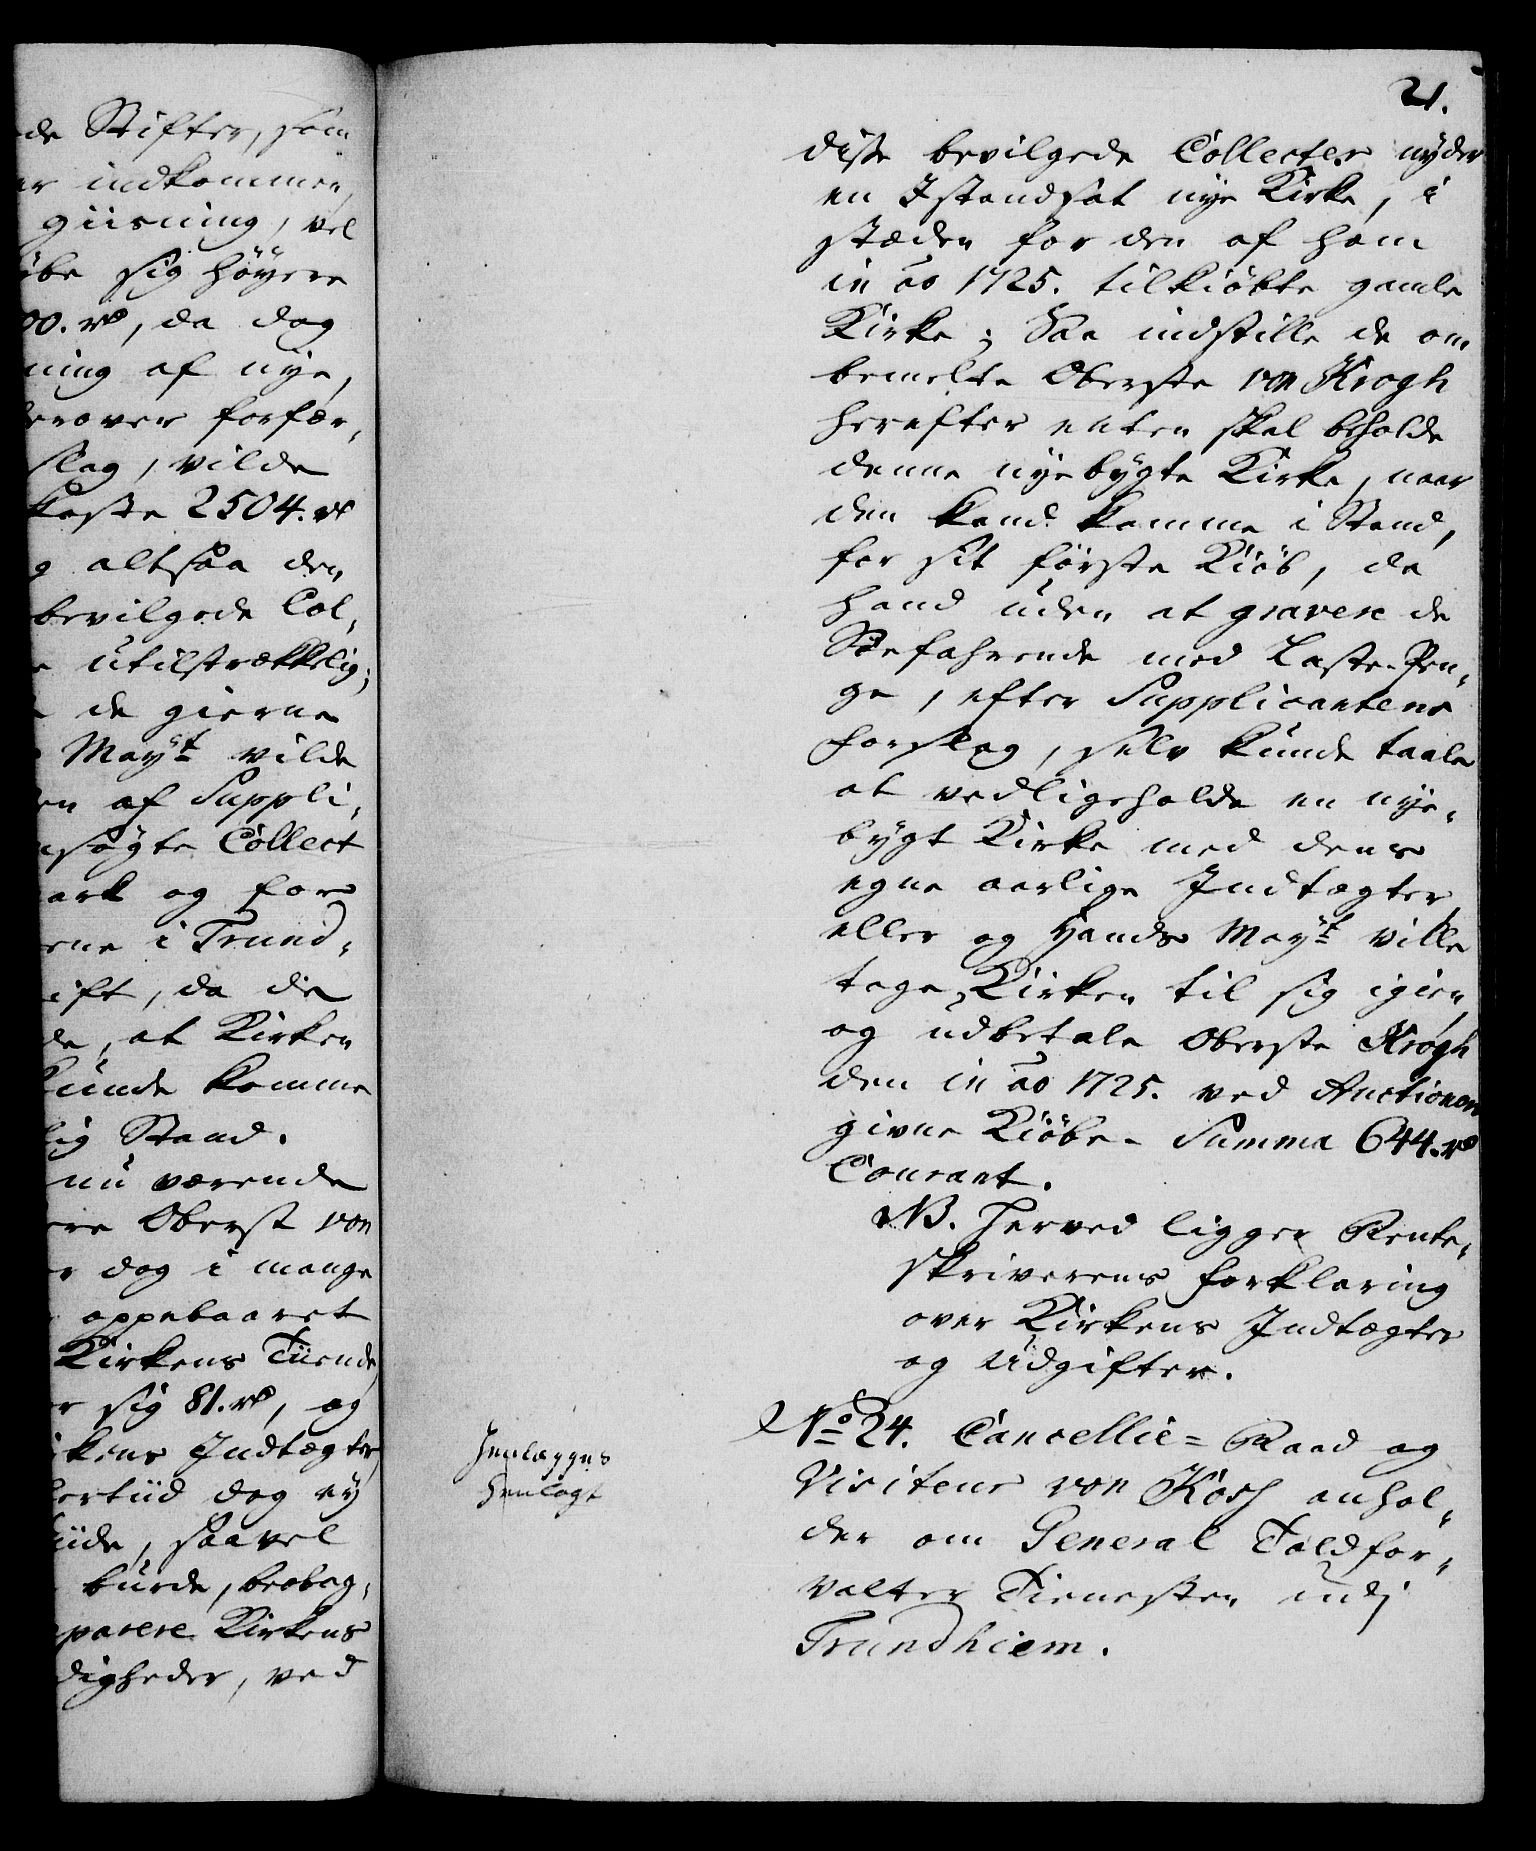 de Stifter, som
er indkommen,
giisning, vel
øbe sig höyere
00. rd, da dog
ning af nye,
derover forfær,
slag, vilde
koste 2504. rd
g altsaa den
bevilgede Col,
e utilstrækkelig;
de gierne
Mayst vilde
en af Suppli,
nsøgte Collect
ark og for
erne i Trund,
ift, da de
de, at Kirken
kunde komme
lig Stand.
nu værende
ere Oberst von
er dog i mange
oppebaaret
Kirkens Tiende,
er sig 81. rd, og
kens Indtægter,
dertiid dog ey
iide, saavel
burde, beobag,
parere Kirkens
digheder, ved
21.
disse bevilgede Collecter nyder
en Istandsat nye Kirke, i
stæden for den af ham
in ao 1725. tilkiöbte gamle
Kirke; Saa indstille de om
bemelte Oberste von Krogh
herefter enten skal beholde
denne nyebygte Kirke, naar
den kand komme i Stand,
for sit förste Kiöb, da
hand uden at gravere de
Söefahrende med Laste-Pen,
ge, efter Supplicantens
Forslag, selv kunde taale
at vedligeholde en nye,
bygt Kirke med dens
egne aarlige Indtægter,
eller og Hands Mayst ville
tage Kirken til sig igien,
og udbetale Oberste Krogh
den in ao 1725. ved Auctionen
givne Kiöbe-Summa 644. rd
Courant.
NB. Herved ligger Rente,
skriverens forklaring
over Kirkens Indtægter
og Udgifter.
Henlægges
henlagt
No 24. Cancellie=Raad og
Visiteur von Kösch anhol,
der om General Toldfor,
valter Tienesten udj
Trundhiem.